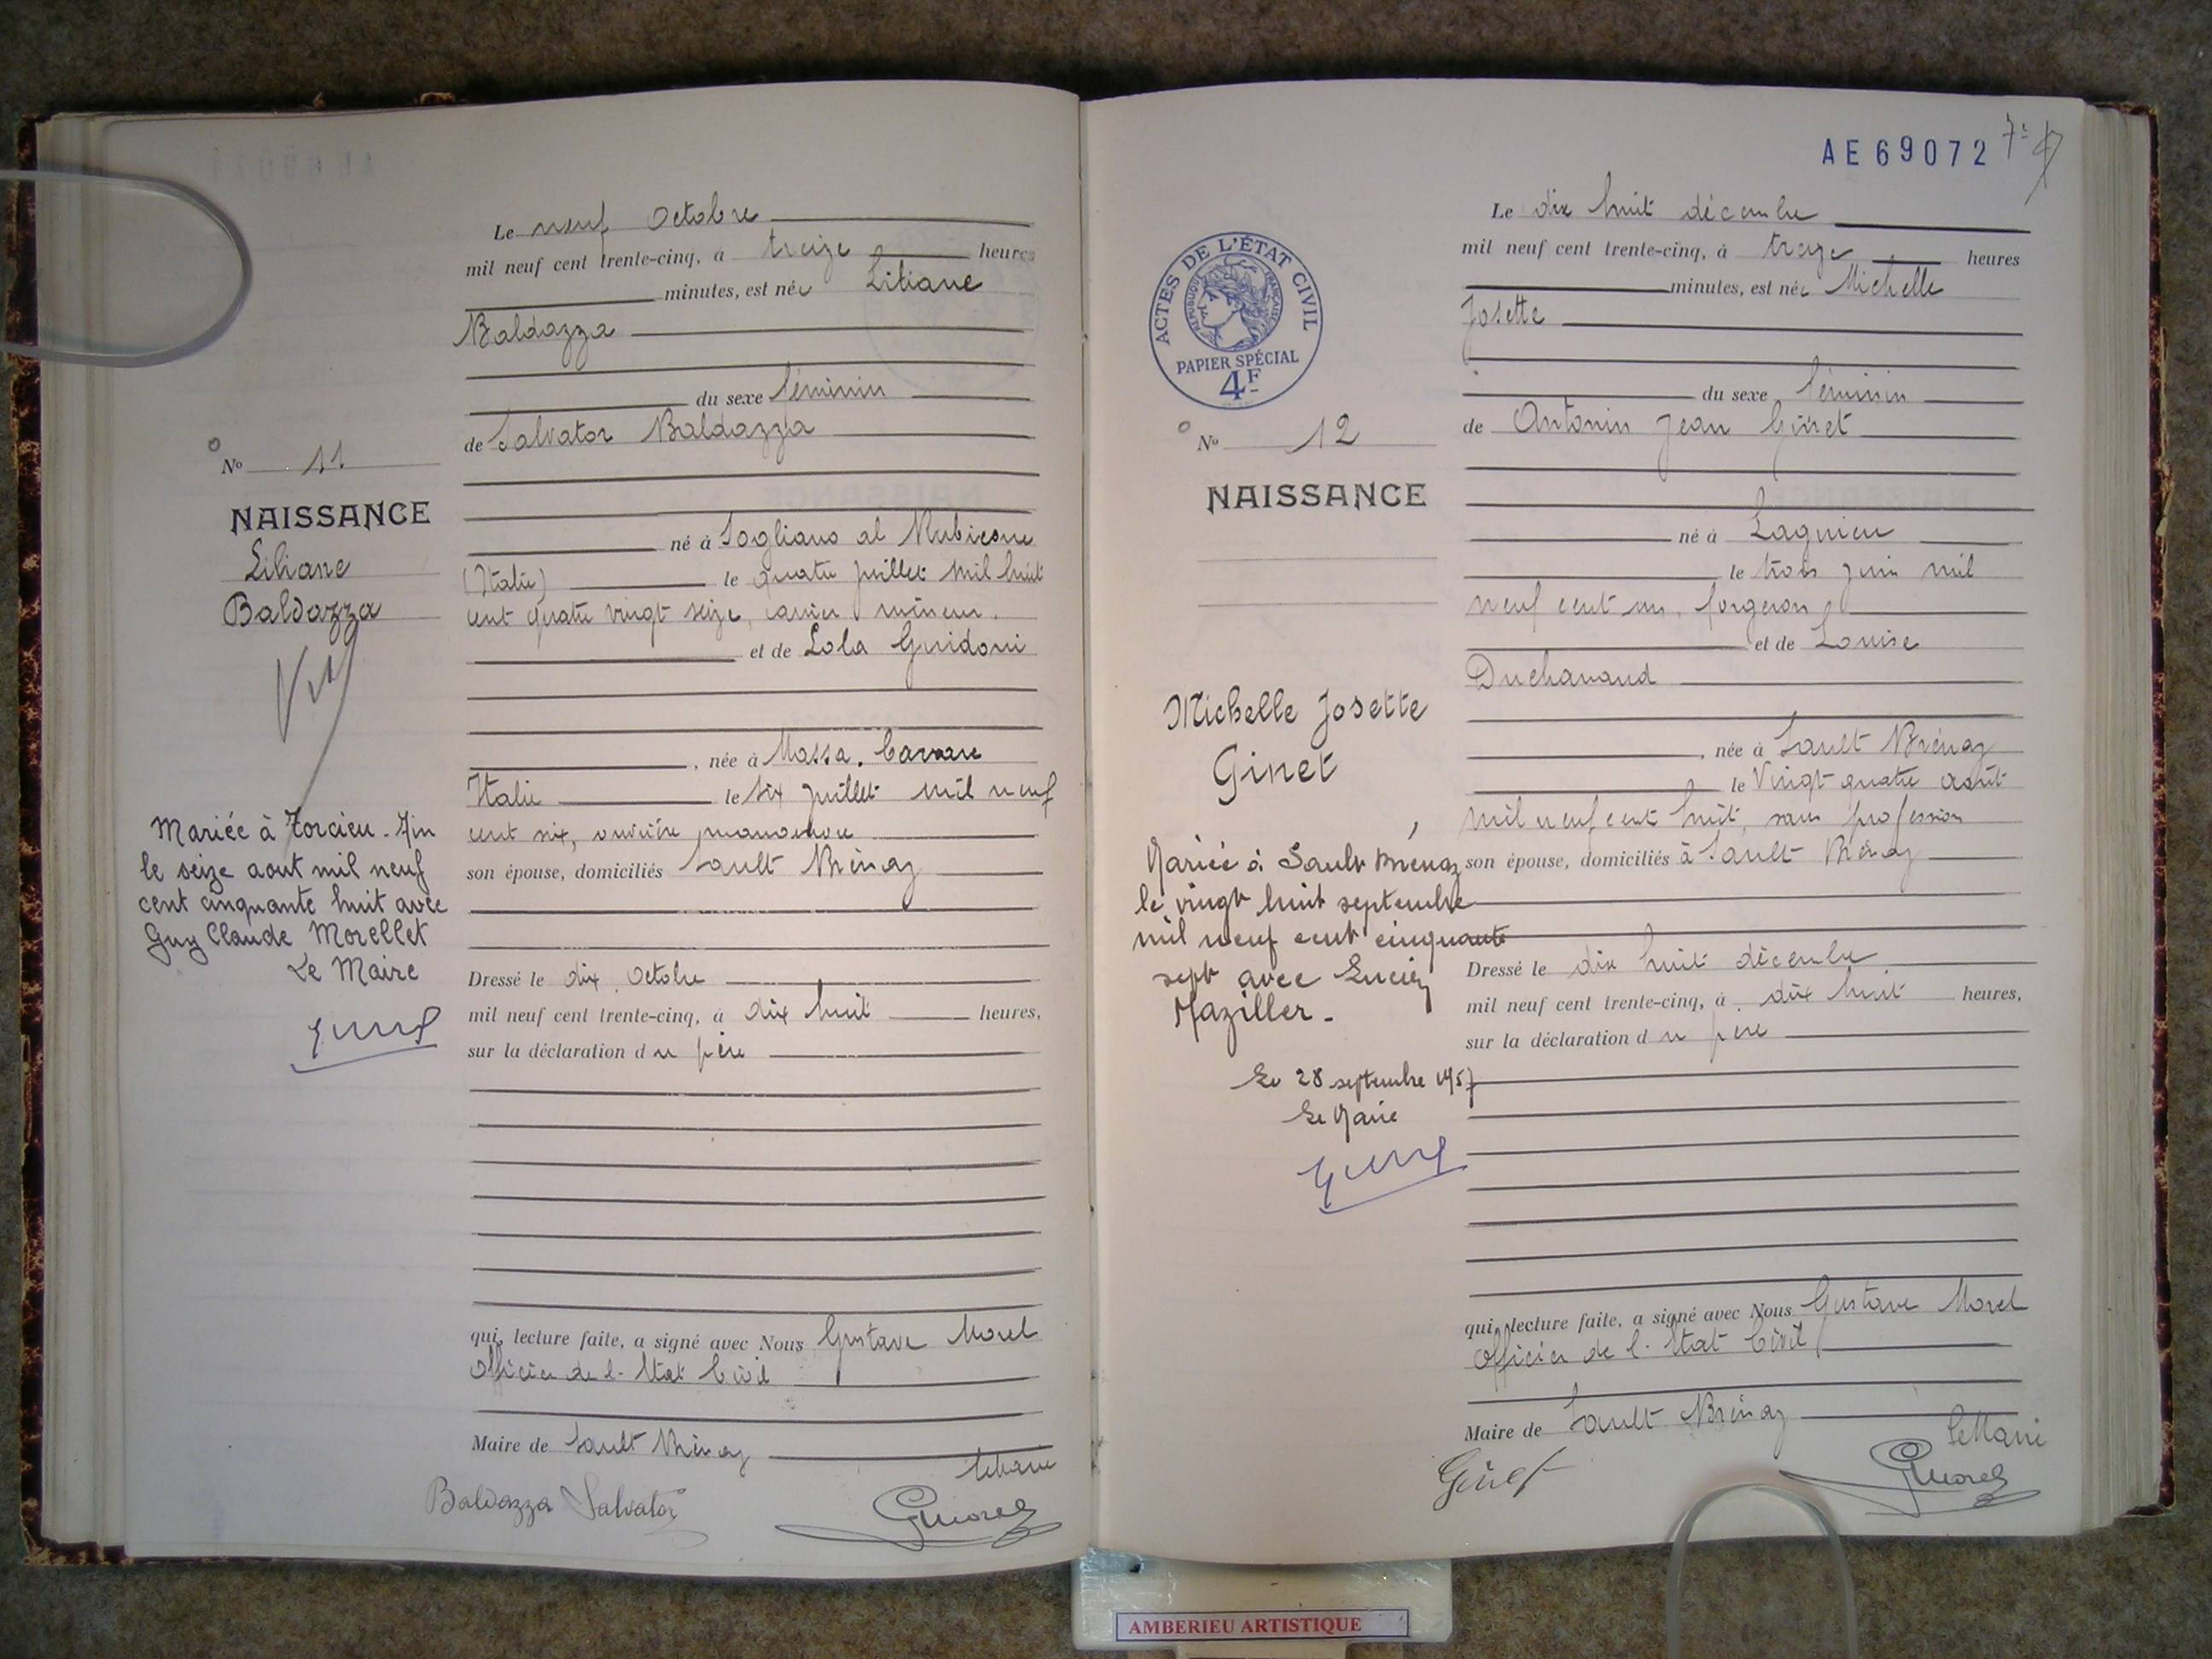 Le neuf Octobre
mil neuf cent trente-cinq, à treize heures
minutes, est née Liliane
Baldazza
du sexe féminin
de Salvator Baldazza
né à Sogliano al Rubicone
(Italie) le quatre juillet mil huit
cent quatre vingt seize, carrier mineur.
et de Lola Guidoni
, née à Massa. Carrare
Italie le six juillet mil neuf
cent six, ouvrière
son épouse, domiciliés Sault Brénaz
Dressé le dix Octobre
mil neuf cent trente-cinq, à dix huit heures,
sur la déclaration du père
qui, lecture faite, a signé avec Nous Gustave Morel
Officier de l'Etat Civil
Maire de Sault Brénaz
Le Maire
Baldazza Salvator
GMorel
No 11
NAISSANCE
Liliane
Baldazza
Mariée à Torcieu - Ain
le seize aout mil neuf
cent cinquante huit avec
Guy Claude Morellet
Le Maire
AE69072
7
Le dix huit décembre
mil neuf cent trente-cinq, à treize heures
minutes, est née Michelle
Josette
du sexe féminin
de Antonin Jean Ginet
né à Lagnieu
le trois juin mil
neuf cent un, forgeron
et de Louise
Duchavaud
, née à Sault Brénaz
le Vingt quatre août
mil neuf cent huit, sans profession
son épouse, domiciliés à Sault Brénaz
Dressé le dix huit décembre
mil neuf cent trente-cinq, à dix huit heures,
sur la déclaration du père
qui, lecture faite, a signé avec Nous Gustave Morel
Officier de l'Etat Civil
Maire de Sault Brénaz
Le Maire
Ginet
GMorel
ACTES DE L'ÉTAT CIVIL
RÉPUBLIQUE FRANÇAISE
PAPIER SPÉCIAL
4F
No 12
NAISSANCE
Michelle Josette
Ginet
Mariée à Sault Brénaz
le vingt huit septembre
mil neuf cent cinquante
sept avec Lucien
Maziller -
Le 28 septembre 1957
Le Maire
AMBERIEU ARTISTIQUE